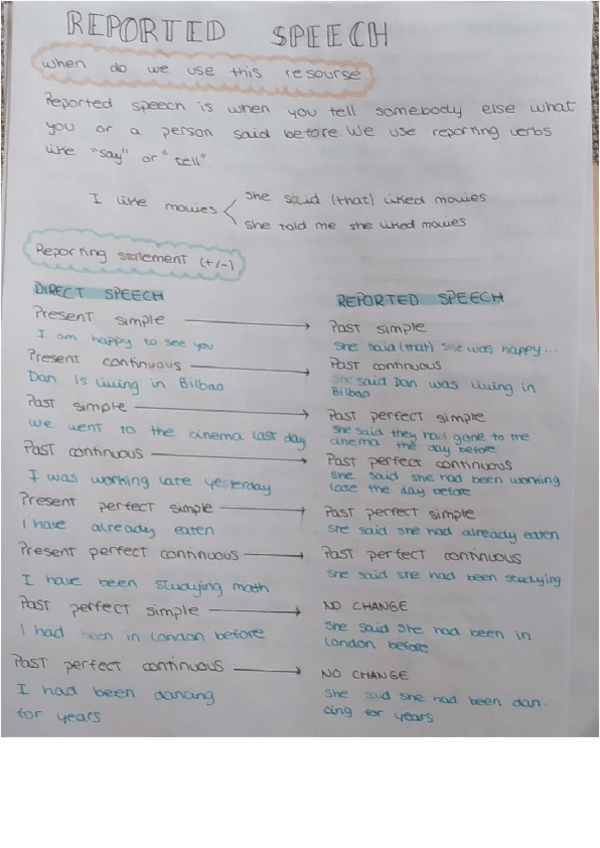 REPORTED SPEECH
when do we use this resourse
Reported speech is when you tell somebody else what
you or a person said before. We use reporting verbs
like "say" or "tell".
I like movies
she said (that) liked movies
she told me she liked movies
Reporting statement (+/-)
DIRECT SPEECH
REPORTED SPEECH
Present simple
Past simple
I am happy to see you
She said (that) she was happy...
Present continuous
Past continuous
Dan is living in Bilbao
She said Dan was living in
Bilbao
Past simple
Past perfect simple
We went to the cinema last day
She said they had gone to the
cinema the day before
Past continuous
Past perfect continuous
I was working late yesterday
she said she had been working
late the day before
Present perfect simple
Past perfect simple
I have already eaten
she said she had already eaten
Present perfect continuous
Past perfect continuous
I have been studying math
she said she had been studying
Past perfect simple
NO CHANGE
I had been in London before
She said she had been in
London before
Past perfect continuous
NO CHANGE
I had been dancing
for years
She said she had been dan-
cing for years